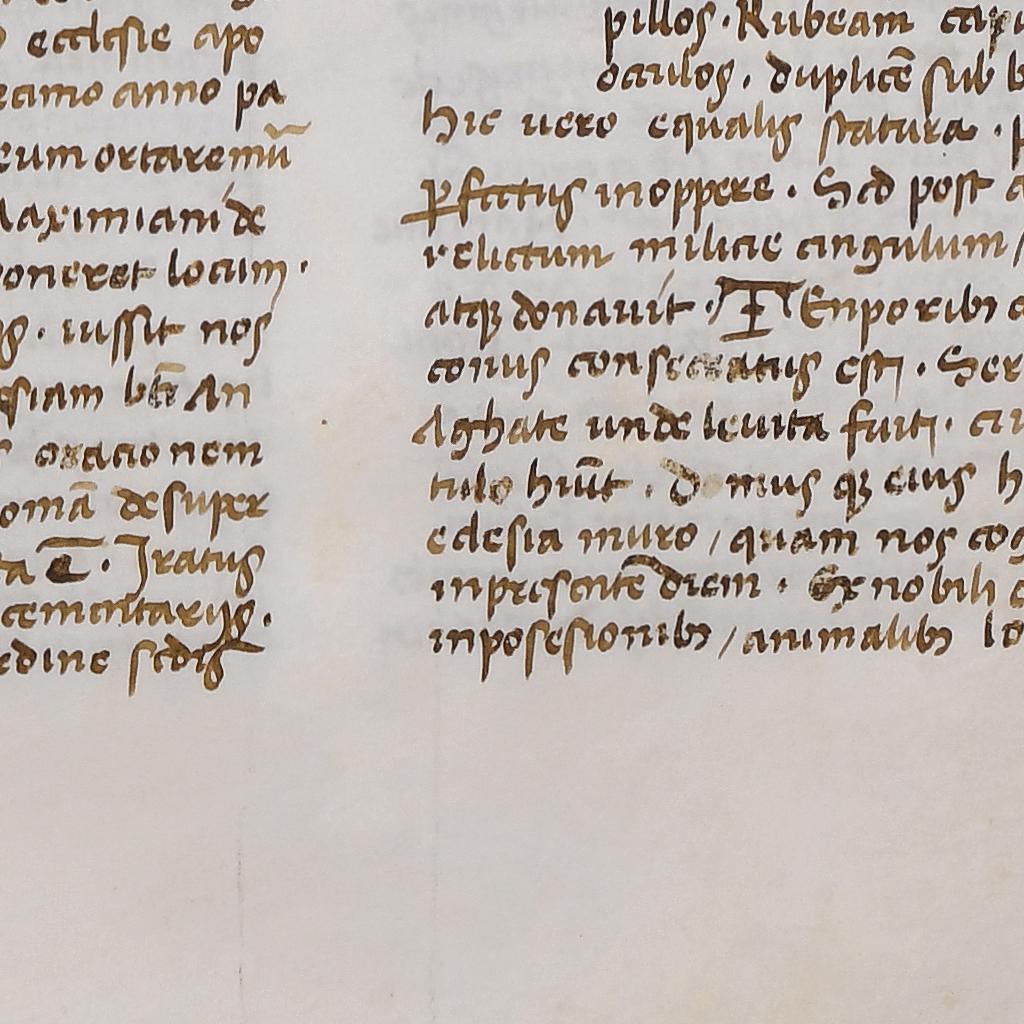 ecclesie apo
ecimo anno pa
eum ortaremū
Maximiani de
poneret locum.
iussit nos
esiam btē An
oracionem
omā de super
ta ē. Iratus
cementarijs.
edine sedis
pillos. Rubeam capi
oculos. duplicē sub b
hic uero equalis statura.
ꝑfectus in oppere. Sed post
relictum milicie cingulum /
atqꝫ donauit. / TEnporibꝫ
corius consecratus est.
Aghate unde leuita fuit.
tulo hūt. Domus qꝫ eius h
eclesia muro / quam nos cog
in presentē diem. Ex nobili
in posesionibꝫ / animalibꝫ lo